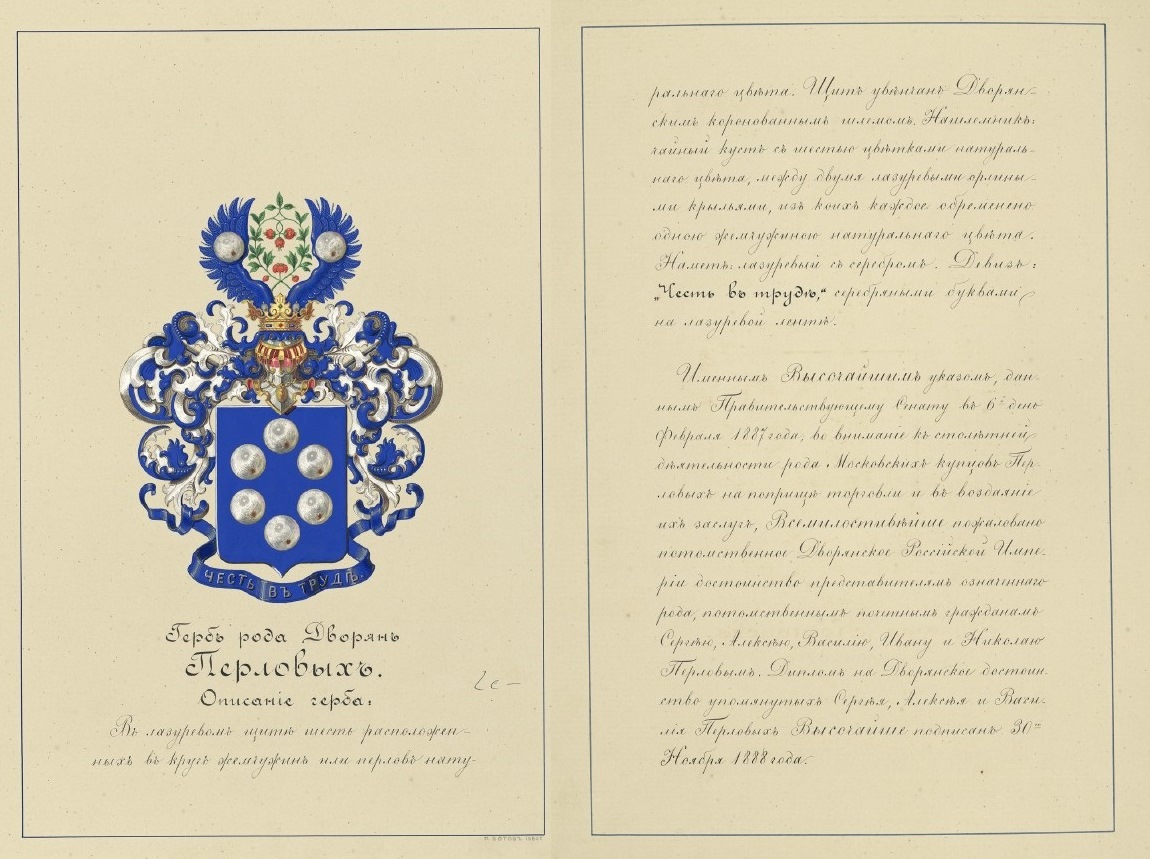 ЧЕСТЬ ВЪ ТРУДѢ.
Гербъ рода Дворянъ
Перловыхъ.
Описаніе герба:
Въ лазуревомъ щитѣ шесть расположен-
ныхъ въ кругъ жемчужинъ или перловъ нату-
ральнаго цвѣта. Щитъ увѣнчанъ Дворян-
скимъ коронованнымъ шлемомъ. Нашлемникъ:
чайный кустъ съ шестью цвѣтками натураль-
наго цвѣта, между двумя лазуревыми орлины-
ми крыльями, изъ коихъ каждое обременено
одною жемчужиною натуральнаго цвѣта.
Наметъ: лазуревый съ серебромъ. Девизъ:
„Честь въ трудѣ,“ серебряными буквами
на лазуревой лентѣ.
Именнымъ Высочайшимъ указомъ, дан-
нымъ Правительствующему Сенату въ 6й день
Февраля 1887 года, во вниманіе къ столѣтней
дѣятельности рода Московскихъ купцовъ Пер-
ловыхъ на поприщѣ торговли и въ воздаяніе
ихъ заслугъ, Всемилостивѣйше пожаловано
потомственное Дворянское Россійской Импе-
ріи достоинство представителямъ означеннаго
рода, потомственнымъ почетнымъ гражданамъ
Сергѣю, Алексѣю, Василію, Ивану и Николаю
Перловымъ. Дипломъ на Дворянское достоин-
ство упомянутыхъ Сергѣя, Алексѣя и Васи-
лія Перловыхъ Высочайше подписанъ 30го
Ноября 1888 года.